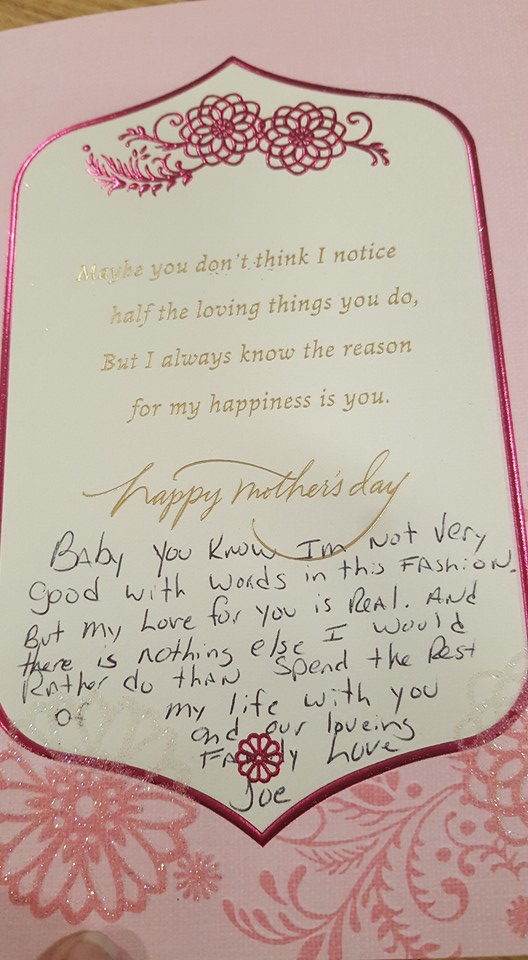 Maybe you don't think I notice
half the loving things you do,
But I always know the reason
for my happiness is you.
happy mother's day
BAby you Know Im Not Very
good with words in this FAshion.
But my Love for you is Real. And
there is nothing else I would
Rather do thAN Spend the Rest
of my life with you
and our loveing
Fa ly Love
Joe